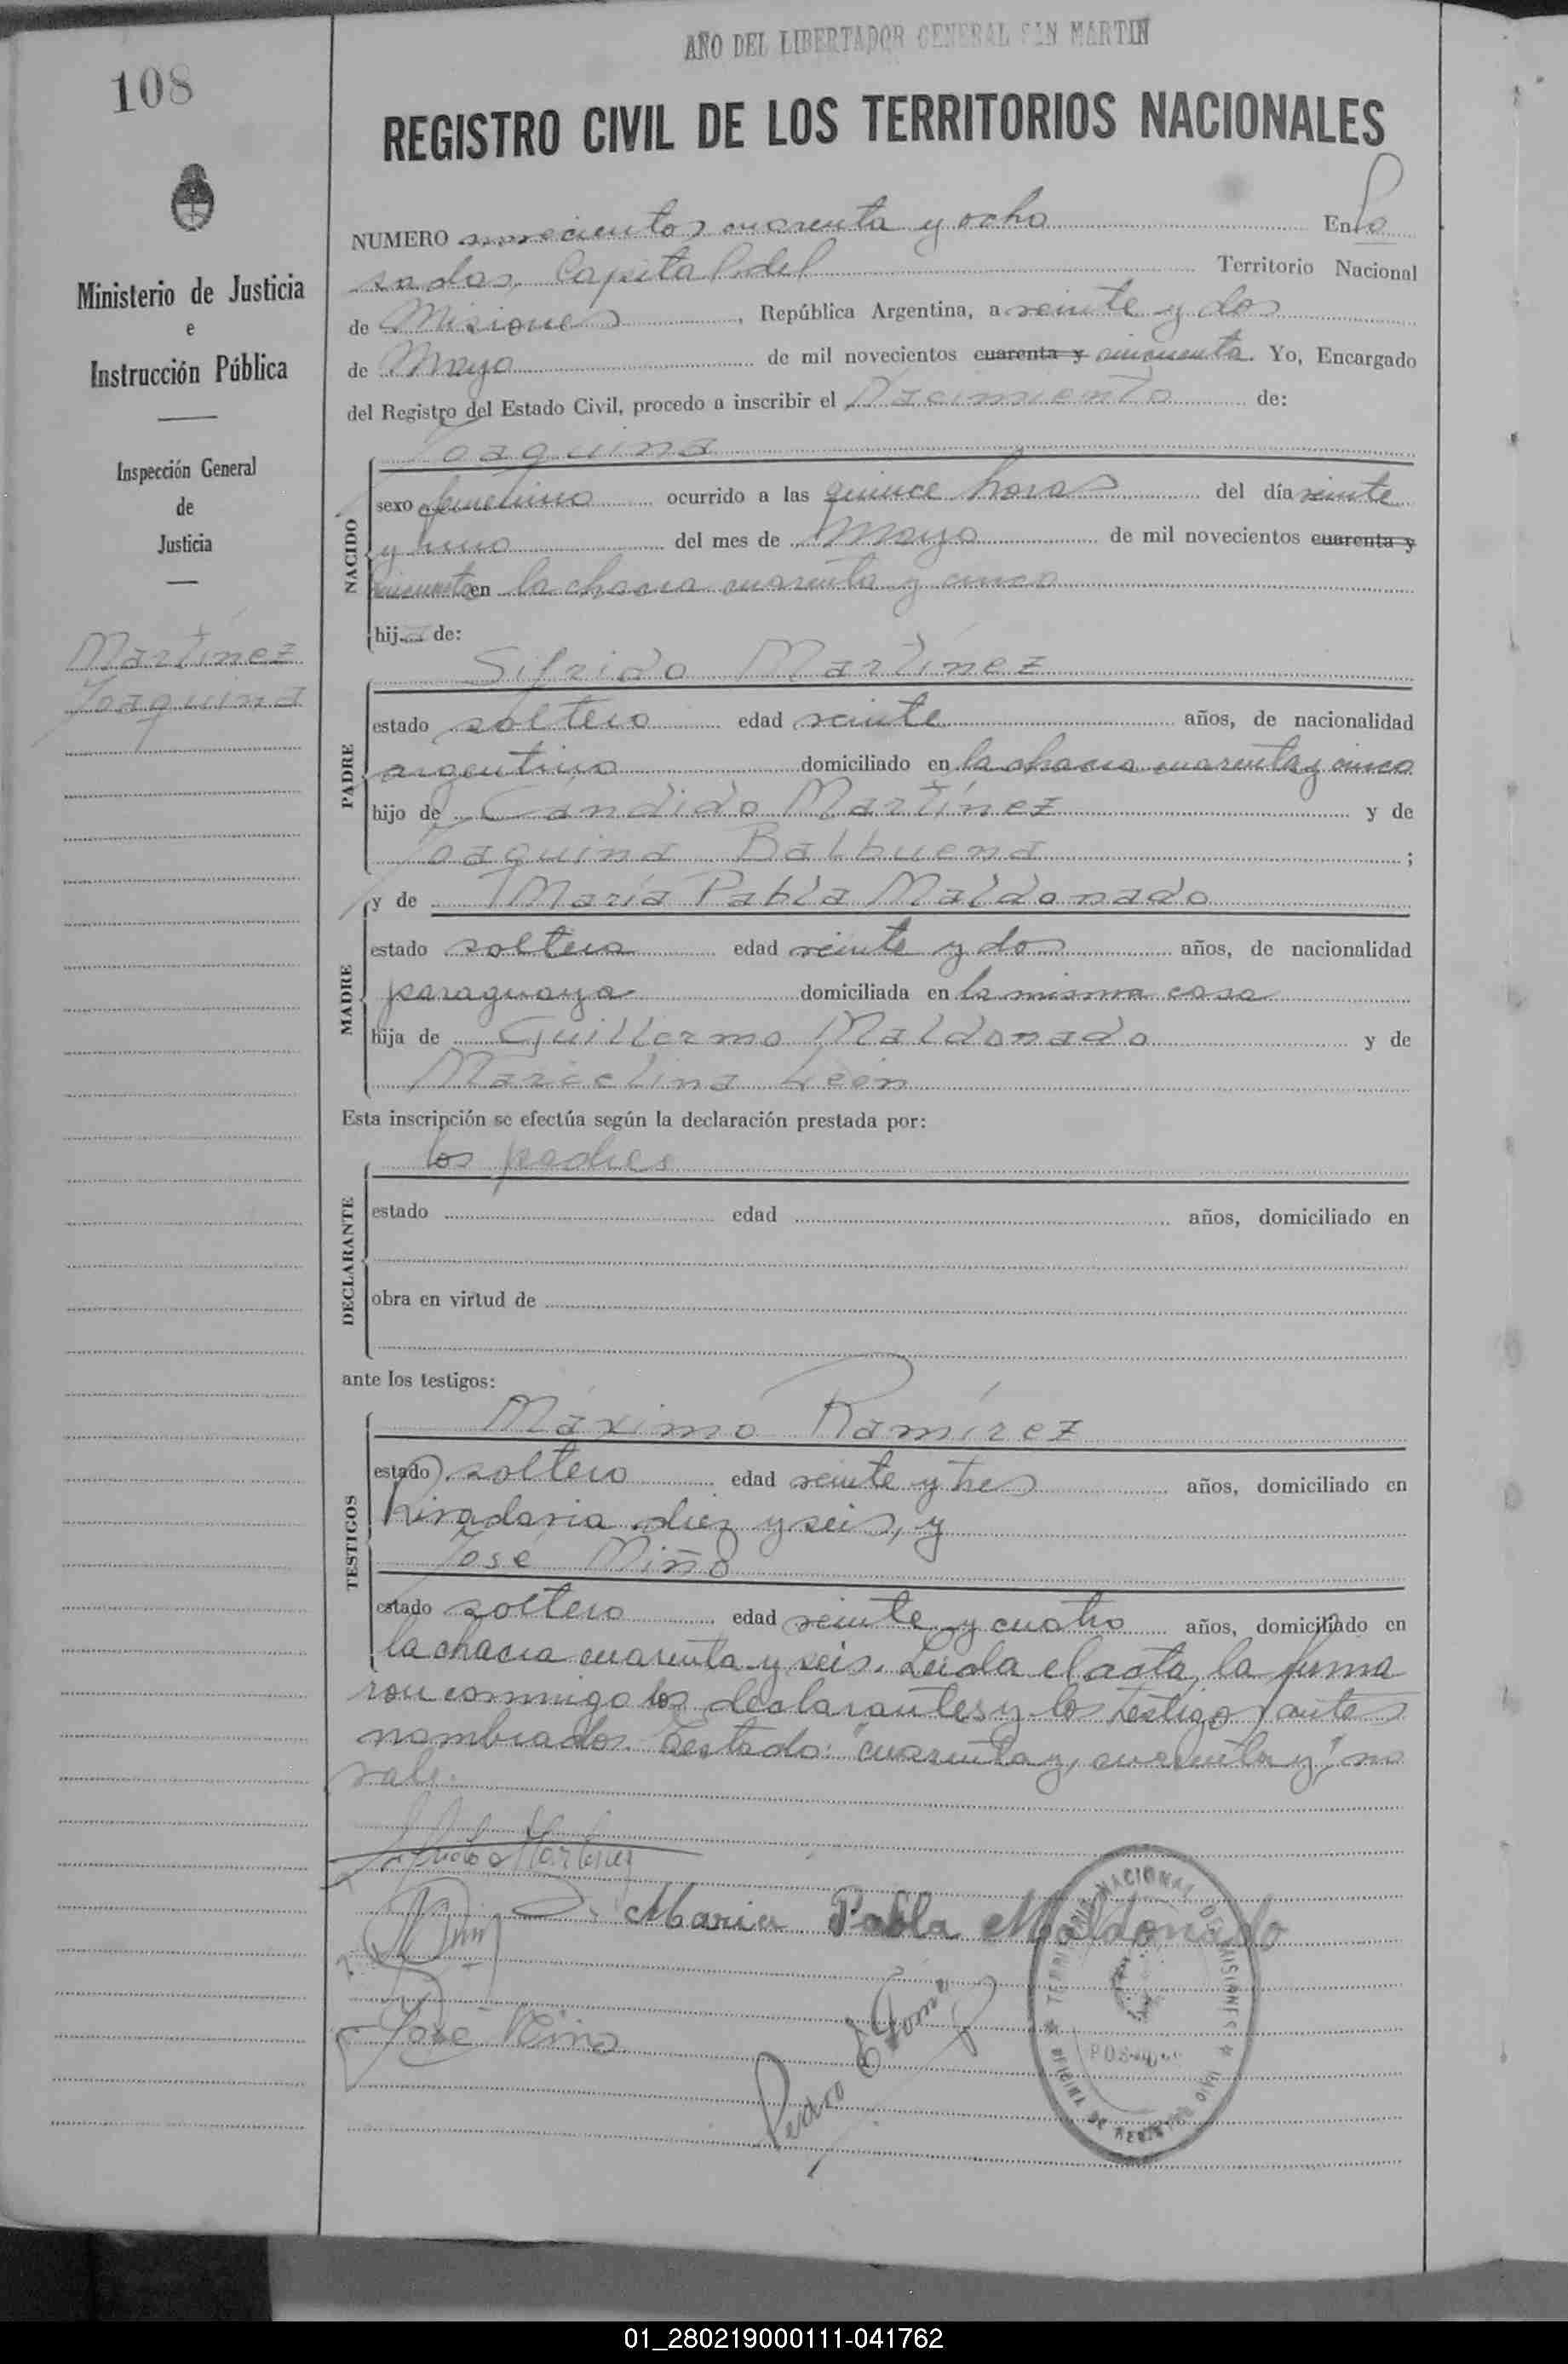 AÑO DEL LIBERTADOR GENERAL SAN MARTIN
108
REGISTRO CIVIL DE LOS TERRITORIOS NACIONALES
Ministerio de Justicia
e
Instrucción Pública
Inspección General
de
Justicia
Martínez
Joaquina
NUMERO novecientos cuarenta y ocho En Po
sadas, Capital del Territorio Nacional
de Misiones, República Argentina, a veinte y dos
de Mayo de mil novecientos cuarenta y cincuenta. Yo, Encargado
del Registro del Estado Civil, procedo a inscribir el Nacimiento de:
Joaquina
NACIDO
sexo femenino ocurrido a las quince horas del día veinte
y uno del mes de Mayo de mil novecientos cuarenta y
cincuenta en la chacra cuarenta y cinco
hija de:
Sifrido Martínez
PADRE
estado soltero edad veinte años, de nacionalidad
argentino domiciliado en la chacra cuarenta y cinco
hijo de Cándido Martínez y de
Joaquina Balbuena ;
y de María Pabla Maldonado
MADRE
estado soltera edad veinte y dos años, de nacionalidad
paraguaya domiciliada en la misma casa
hija de Guillermo Maldonado y de
Marcelina León
Esta inscripción se efectúa según la declaración prestada por:
los padres
DECLARANTE
estado edad años, domiciliado en
obra en virtud de
ante los testigos:
Máximo Ramírez
TESTIGOS
estado soltero edad veinte y tres años, domiciliado en
Rivadavia diez y seis, y
José Miño
estado soltero edad veinte y cuatro años, domiciliado en
la chacra cuarenta y seis. Leida el acta, la firma
ron conmigo los declarantes y los testigos antes
nombrados. Testado: "cuarenta y, cuarenta y", no
vale.
Sifrido Martinez
Maria Pabla Maldonado
José Miño
Pedro E Gomez
TERRITORIO NACIONAL DE MISIONES
POSADAS
OFICINA DE REGISTRO CIVIL
01_280219000111-041762